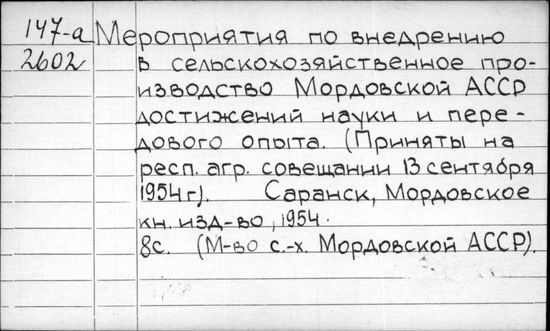 147-а Мероприятия по внедрению
2602 в сельскохозяйственное про-
изводство Мордовской АССР
достижений науки и пере-
дового опыта. (Приняты на
респ. агр. совещании 13 сентября
1954 г). Саранск, Мордовское
кн. изд-во, 1954.
8с. (М-во с.-х. Мордовской АССР).